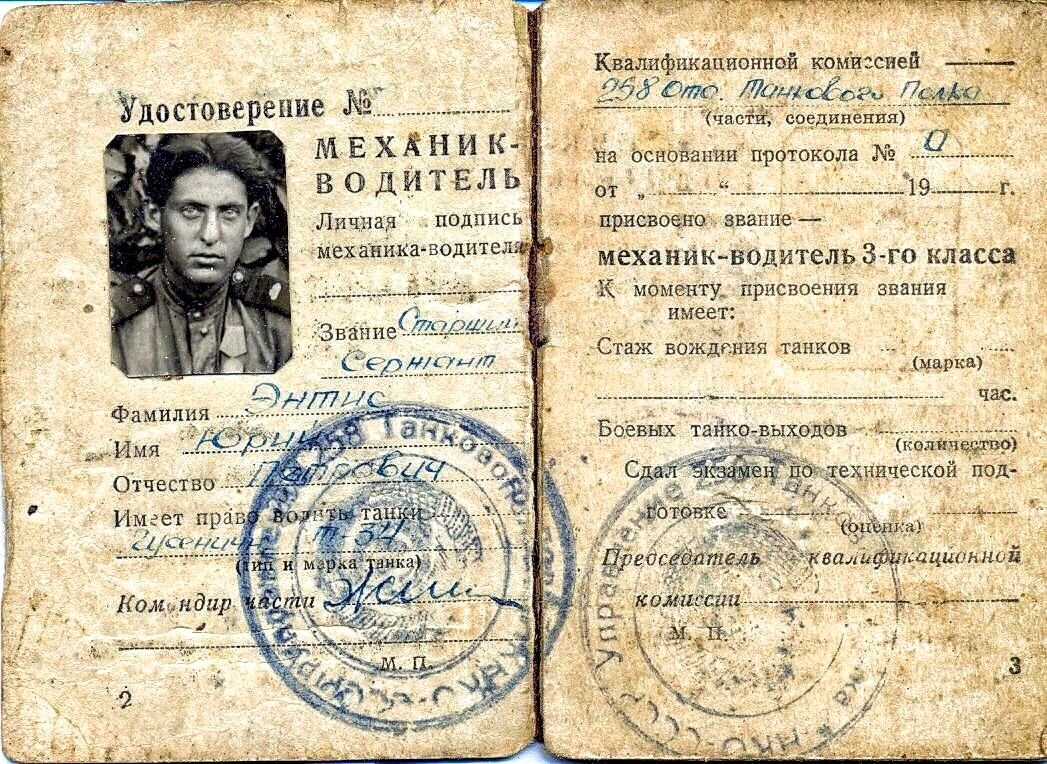 Удостоверение №
МЕХАНИК-
ВОДИТЕЛЬ
Личная подпись
механика-водителя
Звание Старший
Сержант
Фамилия Энтис
Имя Юрий
Отчество Петрович
Имеет право водить танки
Гусеничн Т 34
(тип и марка танка)
Командир части
М. П.
258 Танкового
НКО-СССР
2
Квалификационной комиссией
258 Отд. Танкового Полка
(части, соединения)
на основании протокола №
от „ “ 19 г.
присвоено звание —
механик-водитель 3-го класса
К моменту присвоения звания
имеет:
Стаж вождения танков
(марка)
час.
Боевых танко-выходов
(количество)
Сдал экзамен по технической под-
готовке
(оценка)
Председатель квалификационной
комиссии
М. П.
Управление Танков
НКО-СССР
3